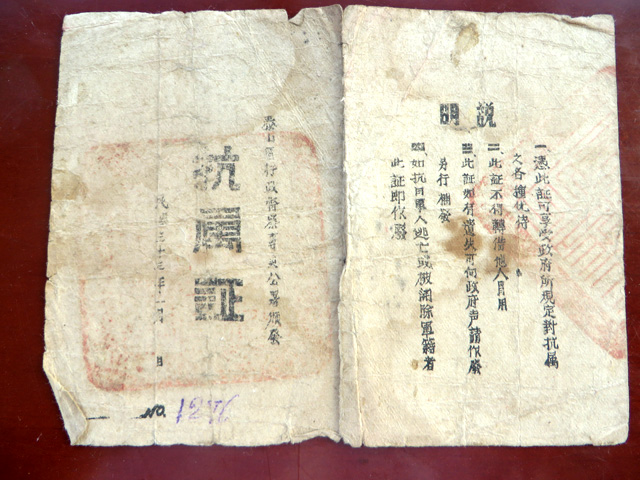 説明
一、憑此証可享受政府所規定對抗属
之各種优待
二、此証不得轉借他人冒用
三、此証如有遺失可向政府声請作廢
另行補發
四、如抗日軍人逃亡或被開除軍籍者
此証即作廢
區行政督察專員公署頒發
抗属証
民國三十三年 月 日
NO.